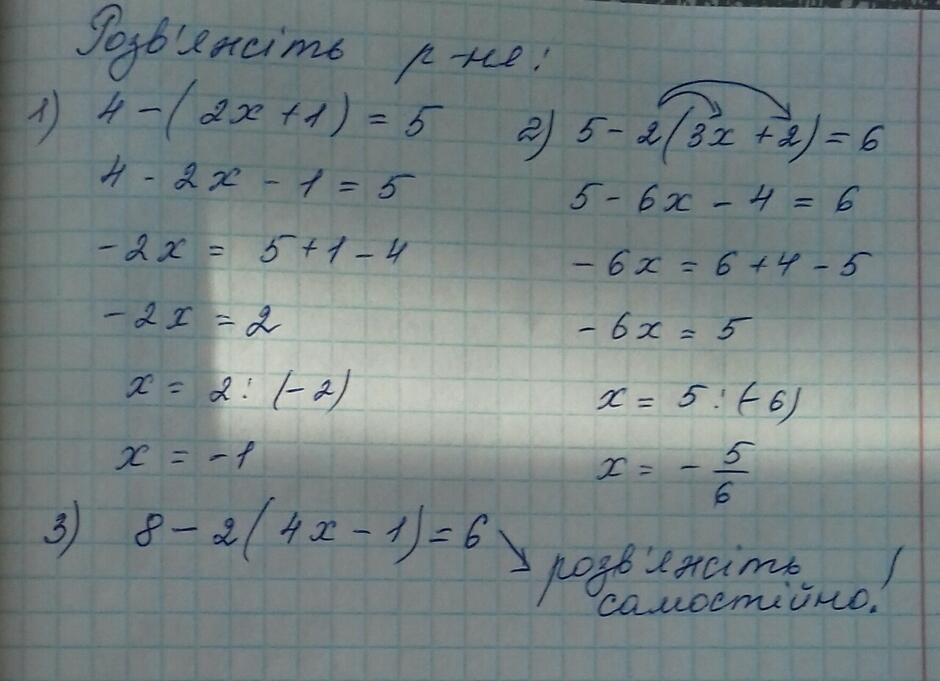 Розв'яжіть р-ня:
1) 4 - (2x + 1) = 5
4 - 2x - 1 = 5
-2x = 5 + 1 - 4
-2x = 2
x = 2 : (-2)
x = -1
2) 5 - 2(3x + 2) = 6
5 - 6x - 4 = 6
-6x = 6 + 4 - 5
-6x = 5
x = 5 : (-6)
x = - 5/6
3) 8 - 2(4x - 1) = 6
розв'яжіть
самостійно!